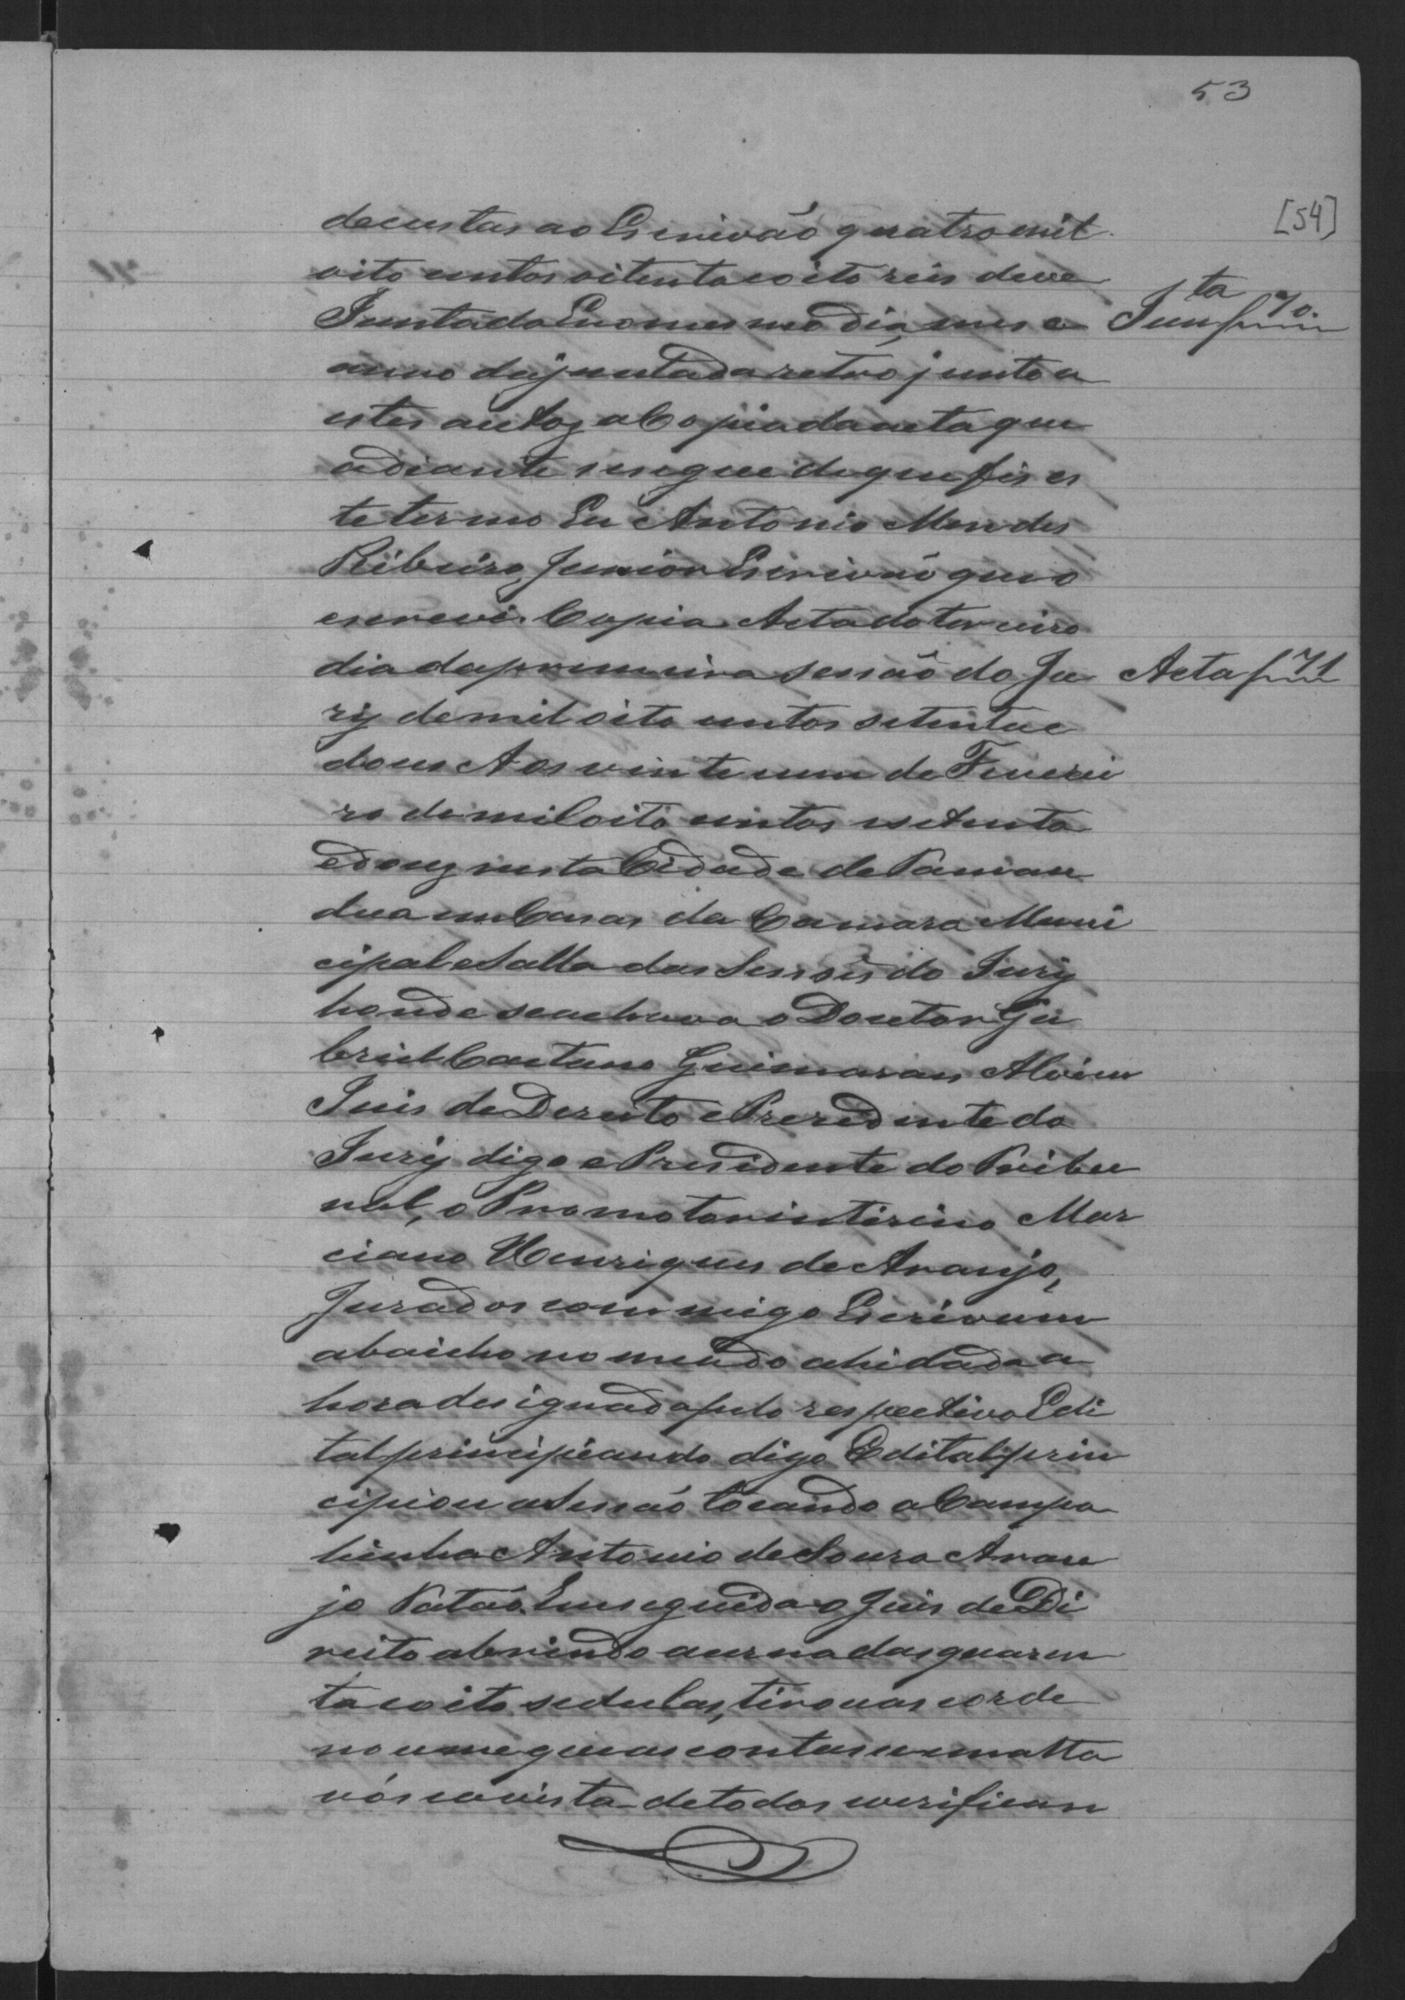 53
[54]
de custas ao Escrivão quatro mil
oito centos oitenta e oito reis deve
Juntada Em o mesmo dia, mes e
Junta f 70.
anno da juntada retro junto a
estes autos a Copia da acta que
adiante se segue de que fis es
te termo Eu Antonio Mendes
Ribeiro Junior Escrivão que o
escrevi. Copia Acta do terceiro
dia da primeira sessão do Ju
Acta f 71
ry de mil oito centos setenta e
dous Aos vinte um de Feverei
ro de mil oito centos e setenta
e dous nesta Cidade de
dua em Casas da Camara Muni
cipal e Salla das Sessões do Jury
honde se achava o Doutor Ga
briel Caetano Guimaraes Alvim
Juis de Dereito e Preredente do
Jury digo e Presidente do Tribu
nal, o Promotor interino Mar
ciano Henriques de Araujo,
Jurados com migo Escrivam
abaicho nomeado ahi dada a
hora designada pelo respectivo Edi
tal principiando digo Edital prin
cipiou a Sessão tocando a Campa
hinha Antonio de Souza Arau
jo Em seguida o Juis de Di
reito abrindo a urna das quaren
ta e oito sedulas, tirou as e orde
nou me que as contasse em alta
vós e a vista de todos e verifican